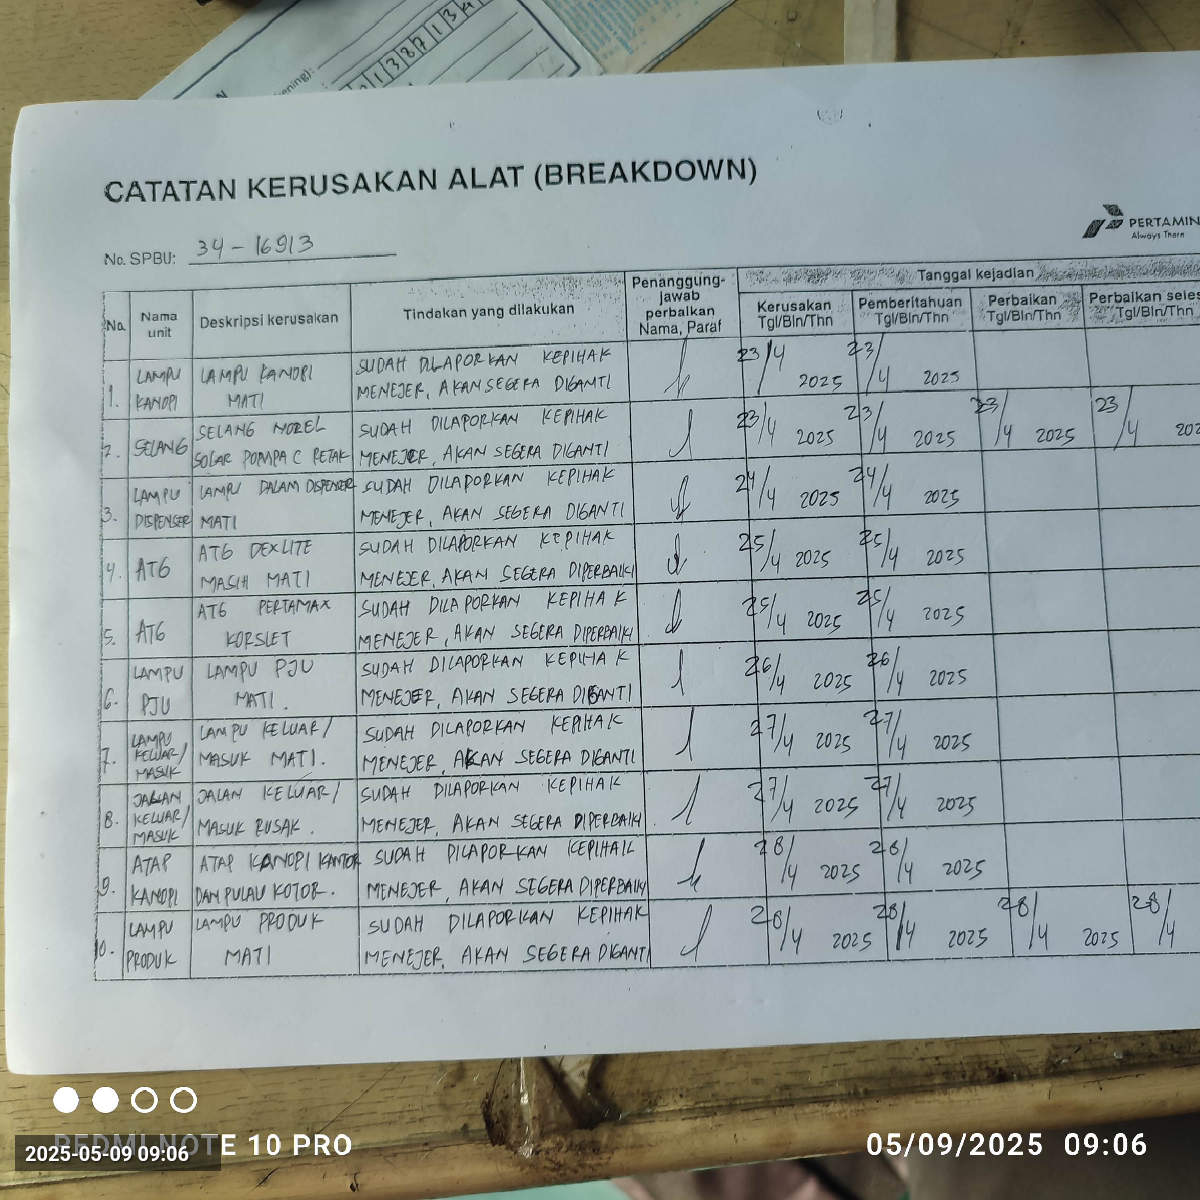 ening):
1 3 8 7 1 3 4
CATATAN KERUSAKAN ALAT (BREAKDOWN)
PERTAMIN
Always There
No. SPBU: 34-16913
No.
Nama unit
Deskripsi kerusakan
Tindakan yang dilakukan
Penanggung-jawab perbaikan Nama, Paraf
Tanggal kejadian
Kerusakan Tgl/Bln/Thn
Pemberitahuan Tgl/Bln/Thn
Perbaikan Tgl/Bln/Thn
Perbaikan seles Tgl/Bln/Thn
1. LAMPU KANOPI LAMPU KANOPI MATI SUDAH DILAPORKAN KEPIHAK MENEJER, AKAN SEGERA DIGANTI 23/4 2025 23/4 2025
2. SELANG SELANG NOZEL SOLAR POMPA C RETAK SUDAH DILAPORKAN KEPIHAK MENEJER, AKAN SEGERA DIGANTI 23/4 2025 23/4 2025 23/4 2025 23/4 202
3. LAMPU DISPENSER LAMPU DALAM DISPENSER MATI SUDAH DILAPORKAN KEPIHAK MENEJER, AKAN SEGERA DIGANTI 24/4 2025 24/4 2025
4. ATG ATG DEXLITE MASIH MATI SUDAH DILAPORKAN KEPIHAK MENEJER, AKAN SEGERA DIPERBAIKI 25/4 2025 25/4 2025
5. ATG ATG PERTAMAX KORSLET SUDAH DILAPORKAN KEPIHAK MENEJER, AKAN SEGERA DIPERBAIKI 25/4 2025 25/4 2025
6. LAMPU PJU LAMPU PJU MATI. SUDAH DILAPORKAN KEPIHAK MENEJER, AKAN SEGERA DIGANTI 26/4 2025 26/4 2025
7. LAMPU KELUAR/ MASUK LAMPU KELUAR/ MASUK MATI. SUDAH DILAPORKAN KEPIHAK MENEJER, AKAN SEGERA DIGANTI 27/4 2025 27/4 2025
8. JALAN KELUAR/ MASUK JALAN KELUAR/ MASUK RUSAK. SUDAH DILAPORKAN KEPIHAK MENEJER, AKAN SEGERA DIPERBAIKI 27/4 2025 27/4 2025
9. ATAP KANOPI ATAP KANOPI KANTOR DAN PULAU KOTOR. SUDAH DILAPORKAN KEPIHAK MENEJER, AKAN SEGERA DIPERBAIKI 28/4 2025 28/4 2025
10. LAMPU PRODUK LAMPU PRODUK MATI SUDAH DILAPORKAN KEPIHAK MENEJER, AKAN SEGERA DIGANTI 28/4 2025 28/4 2025 28/4 2025 28/4
REDMI NOTE 10 PRO
2025-05-09 09:06
05/09/2025 09:06